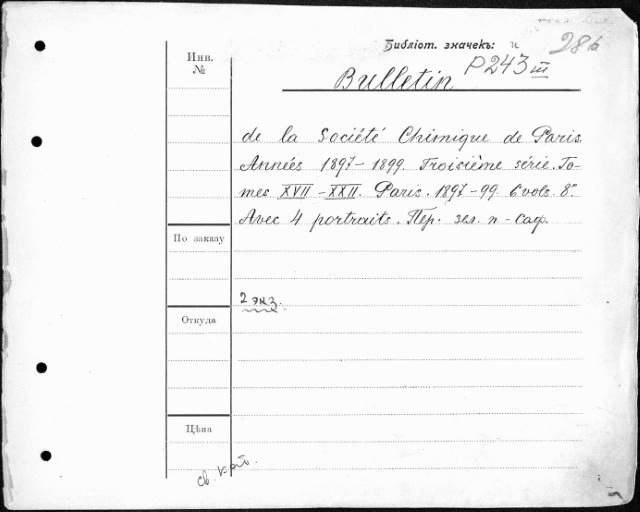 Библіот. значекъ:
P243 III
Инв. №
Bulletin
de la Société Chimique de Paris.
Années 1897–1899. Troisième série. To-
mes XVII–XXII. Paris. 1897–99. 6 vols. 8º
Avec 4 portraits. Пер. зел. п-саф.
По заказу
2 экз.
Откуда
Цѣна